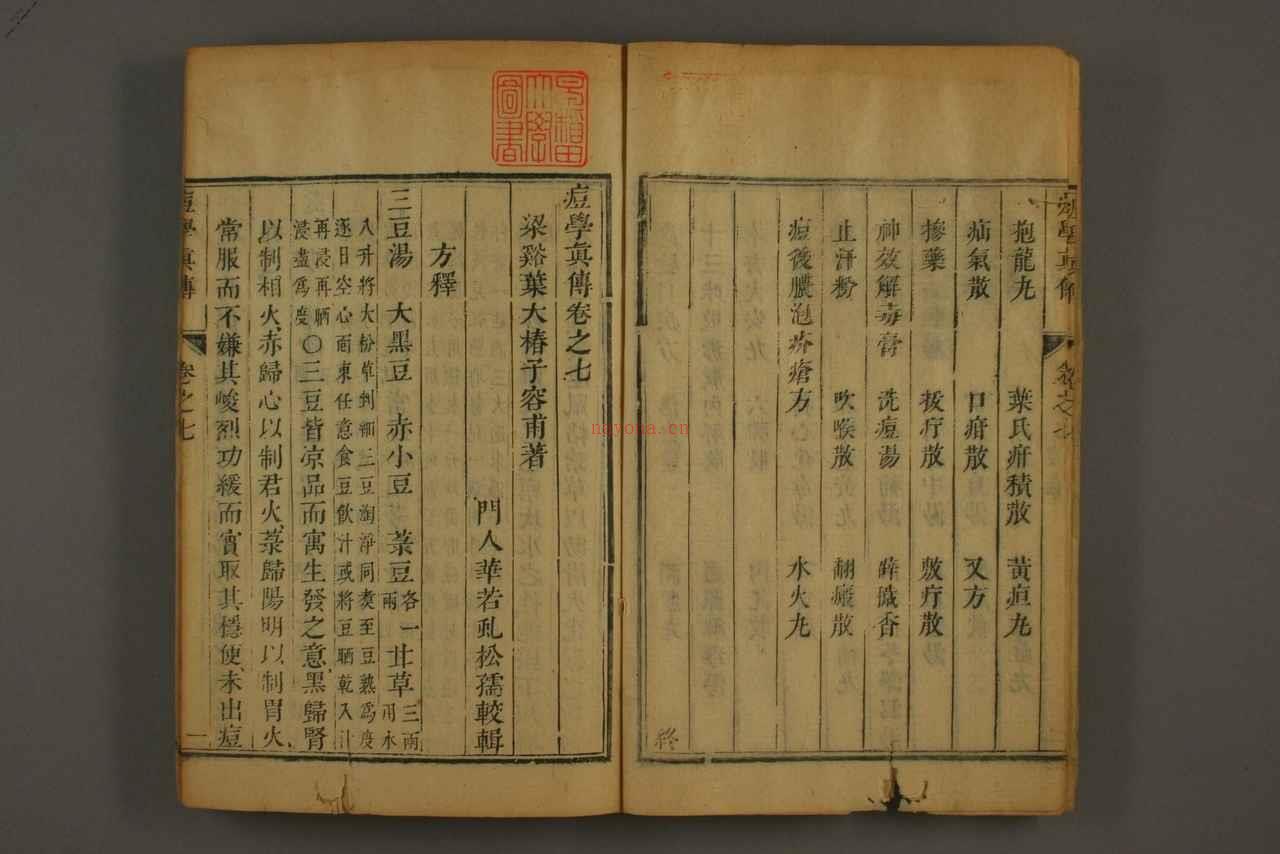 抱龍丸 葉氏疳積散 黃疸丸
疝氣散 口疳散 又方
摻藥 拔疔散 敷疔散
神效解毒膏 洗痘湯 辟穢香
止汗粉 吹喉散 翻癍散
痘後膿泡疥瘡方 水火丸
終
卷之七
痘學真傳卷之七
梁谿葉大椿子容甫著
門人華若虬松孺較輯
方釋
三豆湯 大黑豆 赤小豆 菉豆各一兩 甘草三兩用水
入升將大粉草剉細三豆淘淨同煑至豆熟為度
逐日空心面東任意食豆飲汁或將豆晒乾入汁
再浸再晒浸盡為度
〇三豆皆凉品而寓生發之意黑歸腎
以制相火赤歸心以制君火菉歸陽明以制胃火
常服而不嫌其峻烈功緩而實取其穩便未出痘
痘學真傳 卷之七 一
早稻田大學圖書
nayona.cn